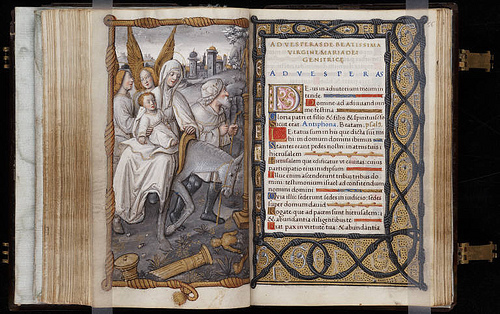 AD VESPERAS DE BEATISSIMA
VIRGINE MARIA DEI
GENITRICE
AD VESPERAS
Deus in adiutorium meum in
tende.
Domine ad adiuuandum
me festina
Gloria patri et filio & spiritui
Sicut erat. Antiphona. Beatam. psal
Letatus sum in his que dicta sunt mi
hi: in domum domini ibimus
Stantes erant pedes nostri: in atriis tuis
hierusalem
hierusalem que edificatur vt ciuitas: cuius
participatio eius in idipsum
Illuc enim ascenderunt tribus tribus do
mini: testimonium israel ad confitendum
nomini domini
Quia illic sederunt sedes in iudicio: sedes
super domum dauid
Rogate que ad pacem sunt hierusalem: &
& abundantia diligentibus te
Fiat pax in virtute tua: & abundantia